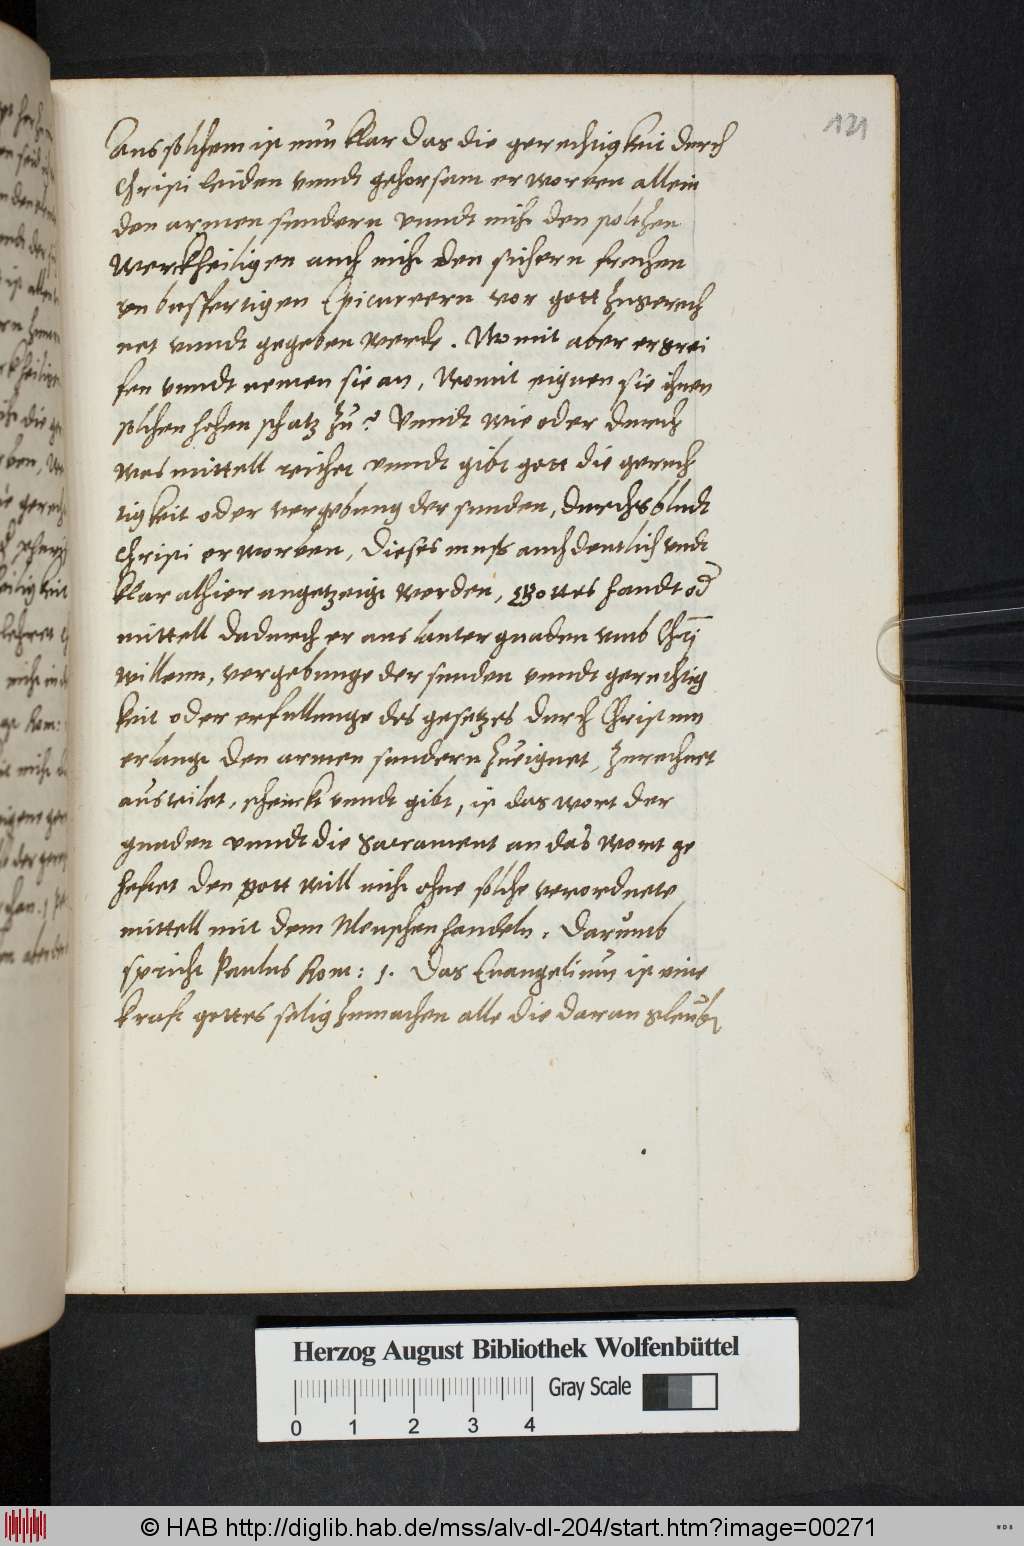 121
Aus solchem ist nun klar das die gerechtigkeit durch
Christi leiden vnndt gehorsam erworben allein
den armen sundern vnndt nicht den stoltzen
Werckheiligen auch nicht den sichern frechen
vnbusfertigen Epicureern vor gott zugerech
net vnndt gegeben werde. Womit aber ergrei
fen vnndt nemen sie an, Womit eignen sie ihnen
solchen hohen schatz zu? Vnndt wie oder durch
was mittell reichet vnndt gibt gott die gerech
tigkeit oder vergebung der sunden, durchs bludt
Christi erworben, Dieses muss auch deutlich vndt
klar alhier angetzeigt werden, Gottes handt od
mittell dadurch er aus lauter gnaden vmb Chri
willenn, vergebunge der sunden vnndt gerechtig
keit oder erfullunge des gesetzes durch Christum
erlangt den armen sundern zueignet, zurechnet
austeilet, schenckt vnndt gibt, ist das wort der
gnaden vnndt die Sacrament an das wort ge
heftet den gott will nicht ohne solche verordnete
mittell mit dem Menschen handeln. Darumb
spricht Paulus Rom: 1. Das Euangelium ist eine
kraft gottes selig zumachen alle die daran gleub
Herzog August Bibliothek Wolfenbüttel
Gray Scale
0 1 2 3 4
© HAB http://diglib.hab.de/mss/alv-dl-204/start.htm?image=00271